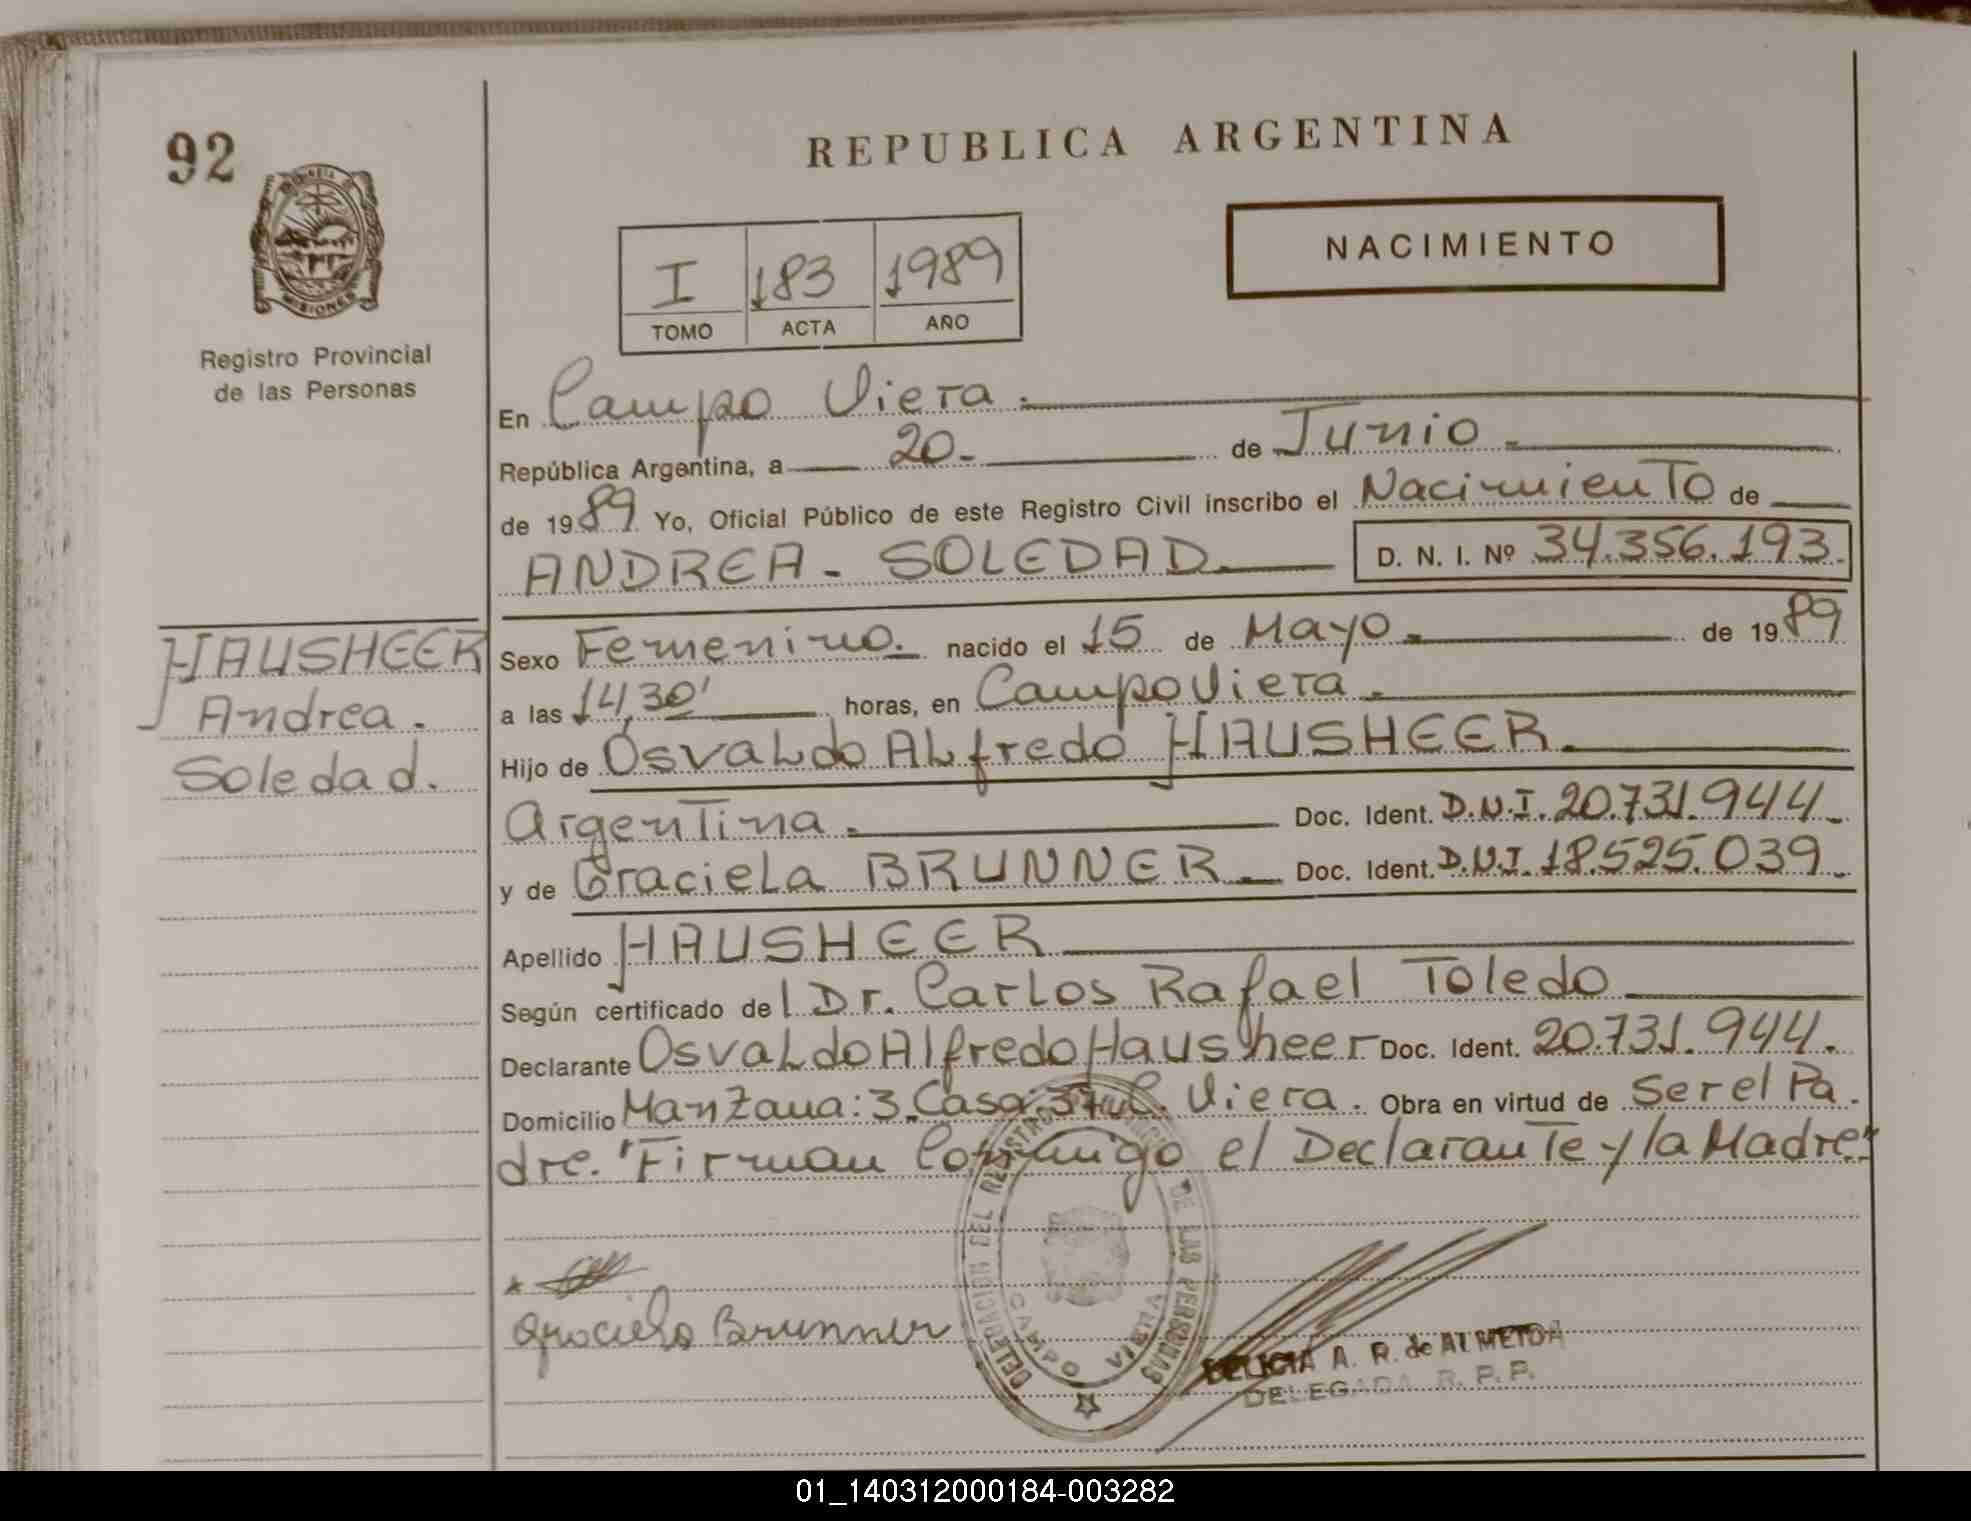 92
REPUBLICA ARGENTINA
NACIMIENTO
I 183 1989
TOMO ACTA AÑO
PROVINCIA DE MISIONES
Registro Provincial
de las Personas
En Campo Viera.
República Argentina, a 20- de Junio-
de 1989. Yo, Oficial Público de este Registro Civil inscribo el Nacimiento de
ANDREA- SOLEDAD. D. N. I. Nº 34.356.193.
HAUSHEER
Andrea.
Soledad.
Sexo Femenino. nacido el 15 de Mayo de 1989
a las 14,30' horas, en Campo Viera.
Hijo de Osvaldo Alfredo HAUSHEER.
Argentina. Doc. Ident. D.N.I. 20.731.944.
y de Graciela BRUNNER. Doc. Ident. D.N.I. 18.525.039.
Apellido HAUSHEER
Según certificado del Dr. Carlos Rafael Toledo
Declarante Osvaldo Alfredo Hausheer Doc. Ident. 20.731.944.
Domicilio Manzana: 3. Casa: 37 C. Viera. Obra en virtud de Ser el Pa.
dre. "Firman Conmigo el Declarante y la Madre"
Graciela Brunner
DELEGACION DEL REGISTRO DE LAS PERSONAS
CAMPO VIERA
DELICIA A. R. de ALMEIDA
DELEGADA R. P. P.
01_140312000184-003282